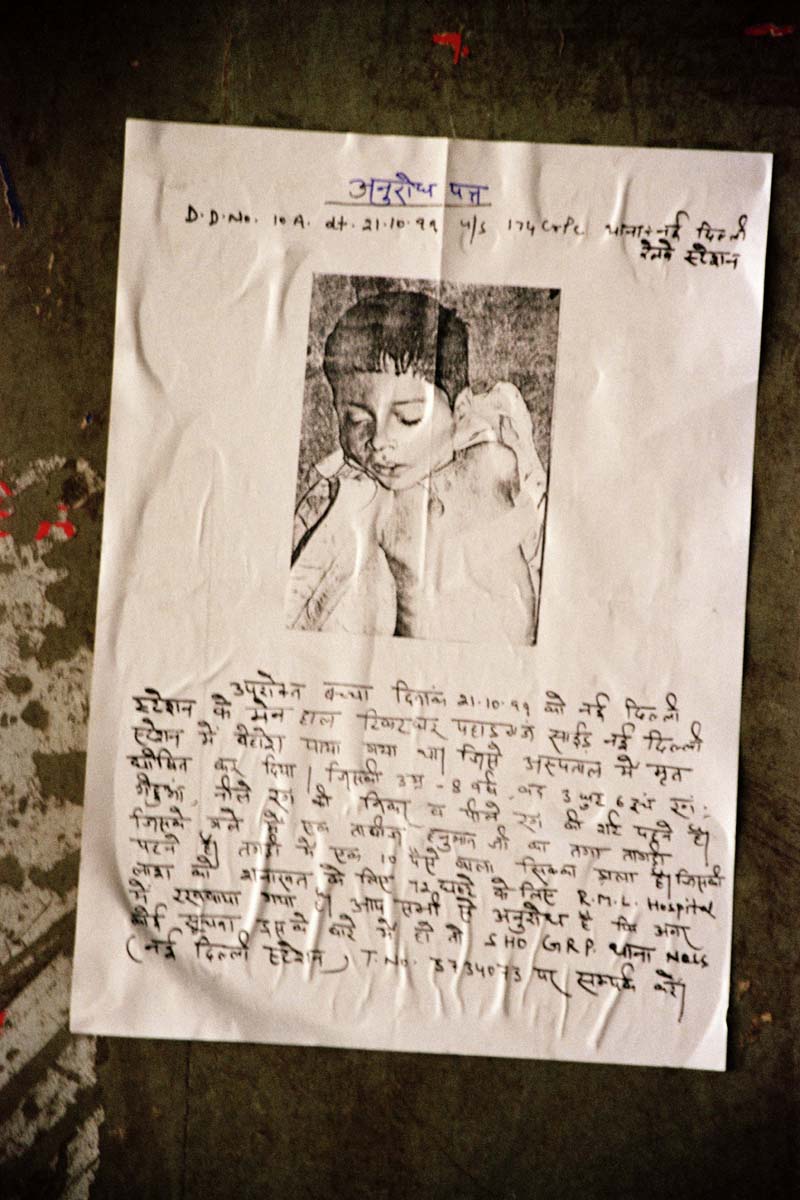 अनुरोध पत्र
D.D.No. 10 A. dt. 21.10.99 u/s 174 CrPc थाना नई दिल्ली
रेलवे स्टेशन
उपरोक्त बच्चा दिनांक 21.10.99 को नई दिल्ली
स्टेशन के मेन हाल टिकटघर पहाडगंज साईड नई दिल्ली
स्टेशन में बेहोश पाया गया था। जिसे अस्पताल में मृत
घोषित कर दिया। जिसकी उम्र - 8 वर्ष, कद 3 फुट 6 इंच रंग:
गेहुंआ, नीले रंग की निकर व पीले रंग की शर्ट पहने है।
जिसके गले में एक ताबीज हनुमान जी का तगा तागडी
पहने है। तागडी में एक 10 पैसे वाला सिक्का डाला है। जिसकी
लाश को शनाख्त के लिए 72 घन्टे के लिए R.M.L. Hospital
में रखवाया गया है। आप सभी से अनुरोध है कि अगर
कोई सूचना इसके बारे में हो तो SHO GRP. थाना NDLS
(नई दिल्ली स्टेशन) T.No. 3734073 पर सम्पर्क करें।